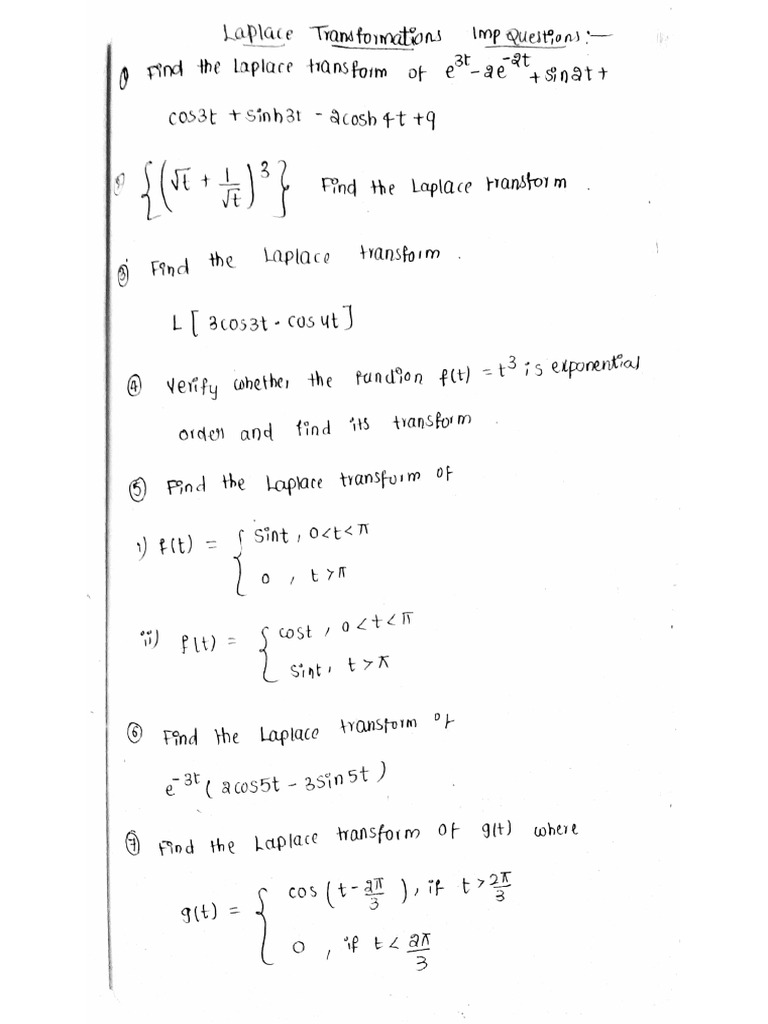 Laplace Transformations Imp Questions:-
① Find the Laplace transform of e^{3t} - 2e^{-2t} + sin2t +
cos3t + sinh3t - 2cosh4t + 9
② {(√t + 1/√t)^3} Find the Laplace transform.
③ Find the Laplace transform.
L[3cos3t - cos4t]
④ Verify whether the function f(t) = t^3 is exponential
order and find its transform.
⑤ Find the Laplace transform of
i) f(t) = { sint, 0<t<π
0, t>π
ii) f(t) = { cost, 0<t<π
sint, t>π
⑥ Find the Laplace transform of
e^{-3t}(2cos5t - 3sin5t)
⑦ Find the Laplace transform of g(t) where
g(t) = { cos(t - 2π/3), if t > 2π/3
0, if t < 2π/3